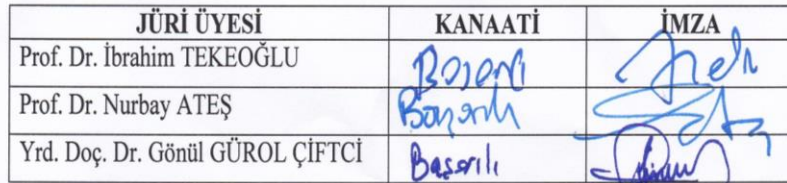 JÜRİ ÜYESİ KANAATİ İMZA
Prof. Dr. İbrahim TEKEOĞLU Başarılı
Prof. Dr. Nurbay ATEŞ Başarılı
Yrd. Doç. Dr. Gönül GÜROL ÇİFTCİ Başarılı